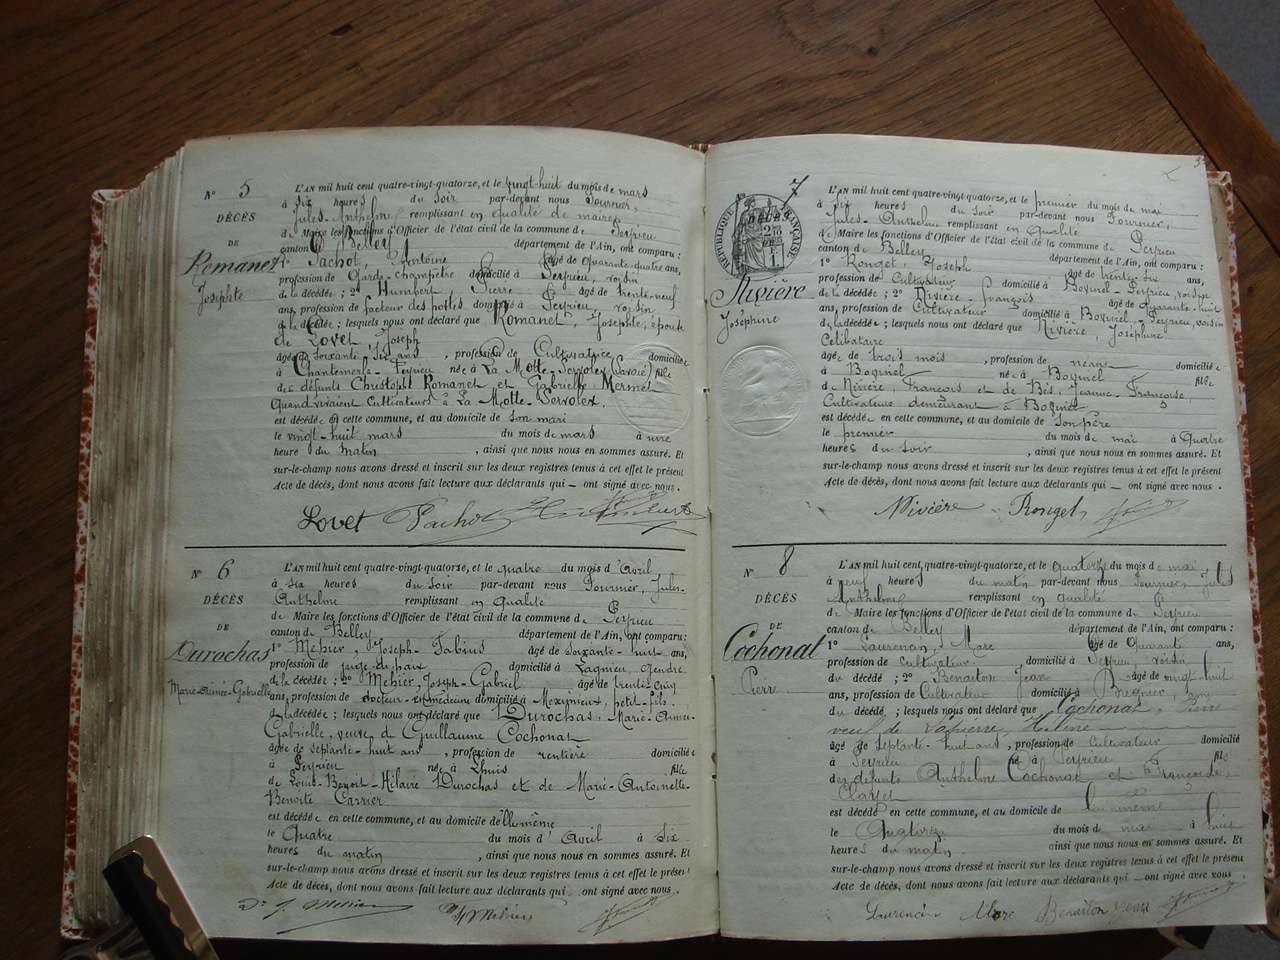 N° 5
DÉCÈS
DE
Romanet
Josephte
L'AN mil huit cent quatre-vingt-quatorze, et le vingt-huit du mois de mars
à six heures du soir par-devant nous Fournier,
Jules-Anthelme remplissant en qualité de maire
de Maire les fonctions d'Officier de l'état civil de la commune de Peyrieu
canton de Belley département de l'Ain, ont comparu :
1° Pachot, Antoine âgé de Quarante-quatre ans,
profession de Garde-champêtre domicilié à Peyrieu, voisin
de la décédée ; 2° Humbert, Pierre âgé de trente-neuf
ans, profession de facteur des postes domicilié à Peyrieu, voisin
de la décédée ; lesquels nous ont déclaré que Romanet, Josephte, épouse
de Lovet Joseph
âgée de Soixante six ans , profession de Cultivatrice domiciliée
à Chantemerle-Peyrieu née à La Motte-Servolex (Savoie) fille
des défunts Christophe Romanet et Gabrielle Mermet
Quand vivaient Cultivateurs à La Motte-Servolex.
est décédée en cette commune, et au domicile de Son mari
le vingt-huit mars du mois de mars à une
heure du matin , ainsi que nous nous en sommes assuré. Et
sur-le-champ nous avons dressé et inscrit sur les deux registres tenus à cet effet le présent
Acte de décès, dont nous avons fait lecture aux déclarants qui _ ont signé avec nous.
Lovet Pachot Humbert
N° 6
DÉCÈS
DE
Durochas
Marie-Aimée-Gabrielle
L'AN mil huit cent quatre-vingt-quatorze, et le quatre du mois d'Avril
à six heures du soir par-devant nous Fournier, Jules-
Anthelme remplissant en qualité
de Maire les fonctions d'Officier de l'état civil de la commune de Peyrieu
canton de Belley département de l'Ain, ont comparu :
1° Méhier, Joseph-Fabius âgé de Soixante-huit ans,
profession de juge de paix domicilié à Lagnieu, gendre
de la décédée ; 2° Méhier, Joseph-Gabriel âgé de trente-cinq
ans, profession de docteur en médecine domicilié à Meximieux, petit-fils
de la décédée ; lesquels nous ont déclaré que Durochas, Marie-Aimée
Gabrielle, veuve de Guillaume Cochonat
âgée de septante-huit ans , profession de rentière domiciliée
à Peyrieu née à Lhuis fille
de Louis-Benoit-Hilaire Durochas et de Marie-Antoinette-
Benoite Carrier
est décédée en cette commune, et au domicile d'Elle même
le Quatre du mois d'Avril à six
heures du matin , ainsi que nous nous en sommes assuré. Et
sur-le-champ nous avons dressé et inscrit sur les deux registres tenus à cet effet le présent
Acte de décès, dont nous avons fait lecture aux déclarants qui _ ont signé avec nous.
Dr J. Méhier Méhier
7
RÉPUBLIQUE FRANÇAISE
Rivière
Joséphine
L'AN mil huit cent quatre-vingt-quatorze, et le premier du mois de mai
à six heures du soir par-devant nous Fournier,
Jules-Anthelme remplissant en qualité
de Maire les fonctions d'Officier de l'état civil de la commune de Peyrieu
canton de Belley département de l'Ain, ont comparu :
1° Rouget, Joseph âgé de trente-six ans,
profession de Cultivateur domicilié à Bovinel-Peyrieu, voisin
de la décédée ; 2° Rivière-françois âgé de Quarante-huit
ans, profession de Cultivateur domicilié à Bovinel-Peyrieu, voisin
de la décédée ; lesquels nous ont déclaré que Rivière, Joséphine
Célibataire
âgée de trois mois , profession de néant domiciliée
à Bovinel née à Bovinel fille
de Rivière, François et de Bès, Jeanne-Françoise,
Cultivateurs demeurant à Bovinel
est décédée en cette commune, et au domicile de Son père
le premier du mois de mai à Quatre
heures du soir , ainsi que nous nous en sommes assuré. Et
sur-le-champ nous avons dressé et inscrit sur les deux registres tenus à cet effet le présent
Acte de décès, dont nous avons fait lecture aux déclarants qui _ ont signé avec nous.
Rivière Rouget
N° 8
DÉCÈS
DE
Cochonat
Pierre
L'AN mil huit cent quatre-vingt-quatorze, et le quatorze du mois de mai
à neuf heures du matin par-devant nous Fournier Jules
Anthelme remplissant en qualité
de Maire les fonctions d'Officier de l'état civil de la commune de Peyrieu
canton de Belley département de l'Ain, ont comparu :
1° Laurencin, Marc âgé de Quarante ans,
profession de Cultivateur domicilié à Peyrieu, voisin
du décédé ; 2° Benaiton Jean âgé de vingt-huit
ans, profession de Cultivateur domicilié à Brégnier, ami
du décédé ; lesquels nous ont déclaré que Cochonat, Pierre
veuf de Lapierre, Hélène
âgé de septante-huit ans , profession de Cultivateur domicilié
à Peyrieu né à Peyrieu fils
des défunts Anthelme Cochonat et Françoise
Clayet
est décédé en cette commune, et au domicile de lui même
le Quatorze du mois de mai à huit
heures du matin ainsi que nous nous en sommes assuré. Et
sur-le-champ nous avons dressé et inscrit sur les deux registres tenus à cet effet le présent
Acte de décès, dont nous avons fait lecture aux déclarants qui _ ont signé avec nous
Laurencin Marc Benaiton Jean